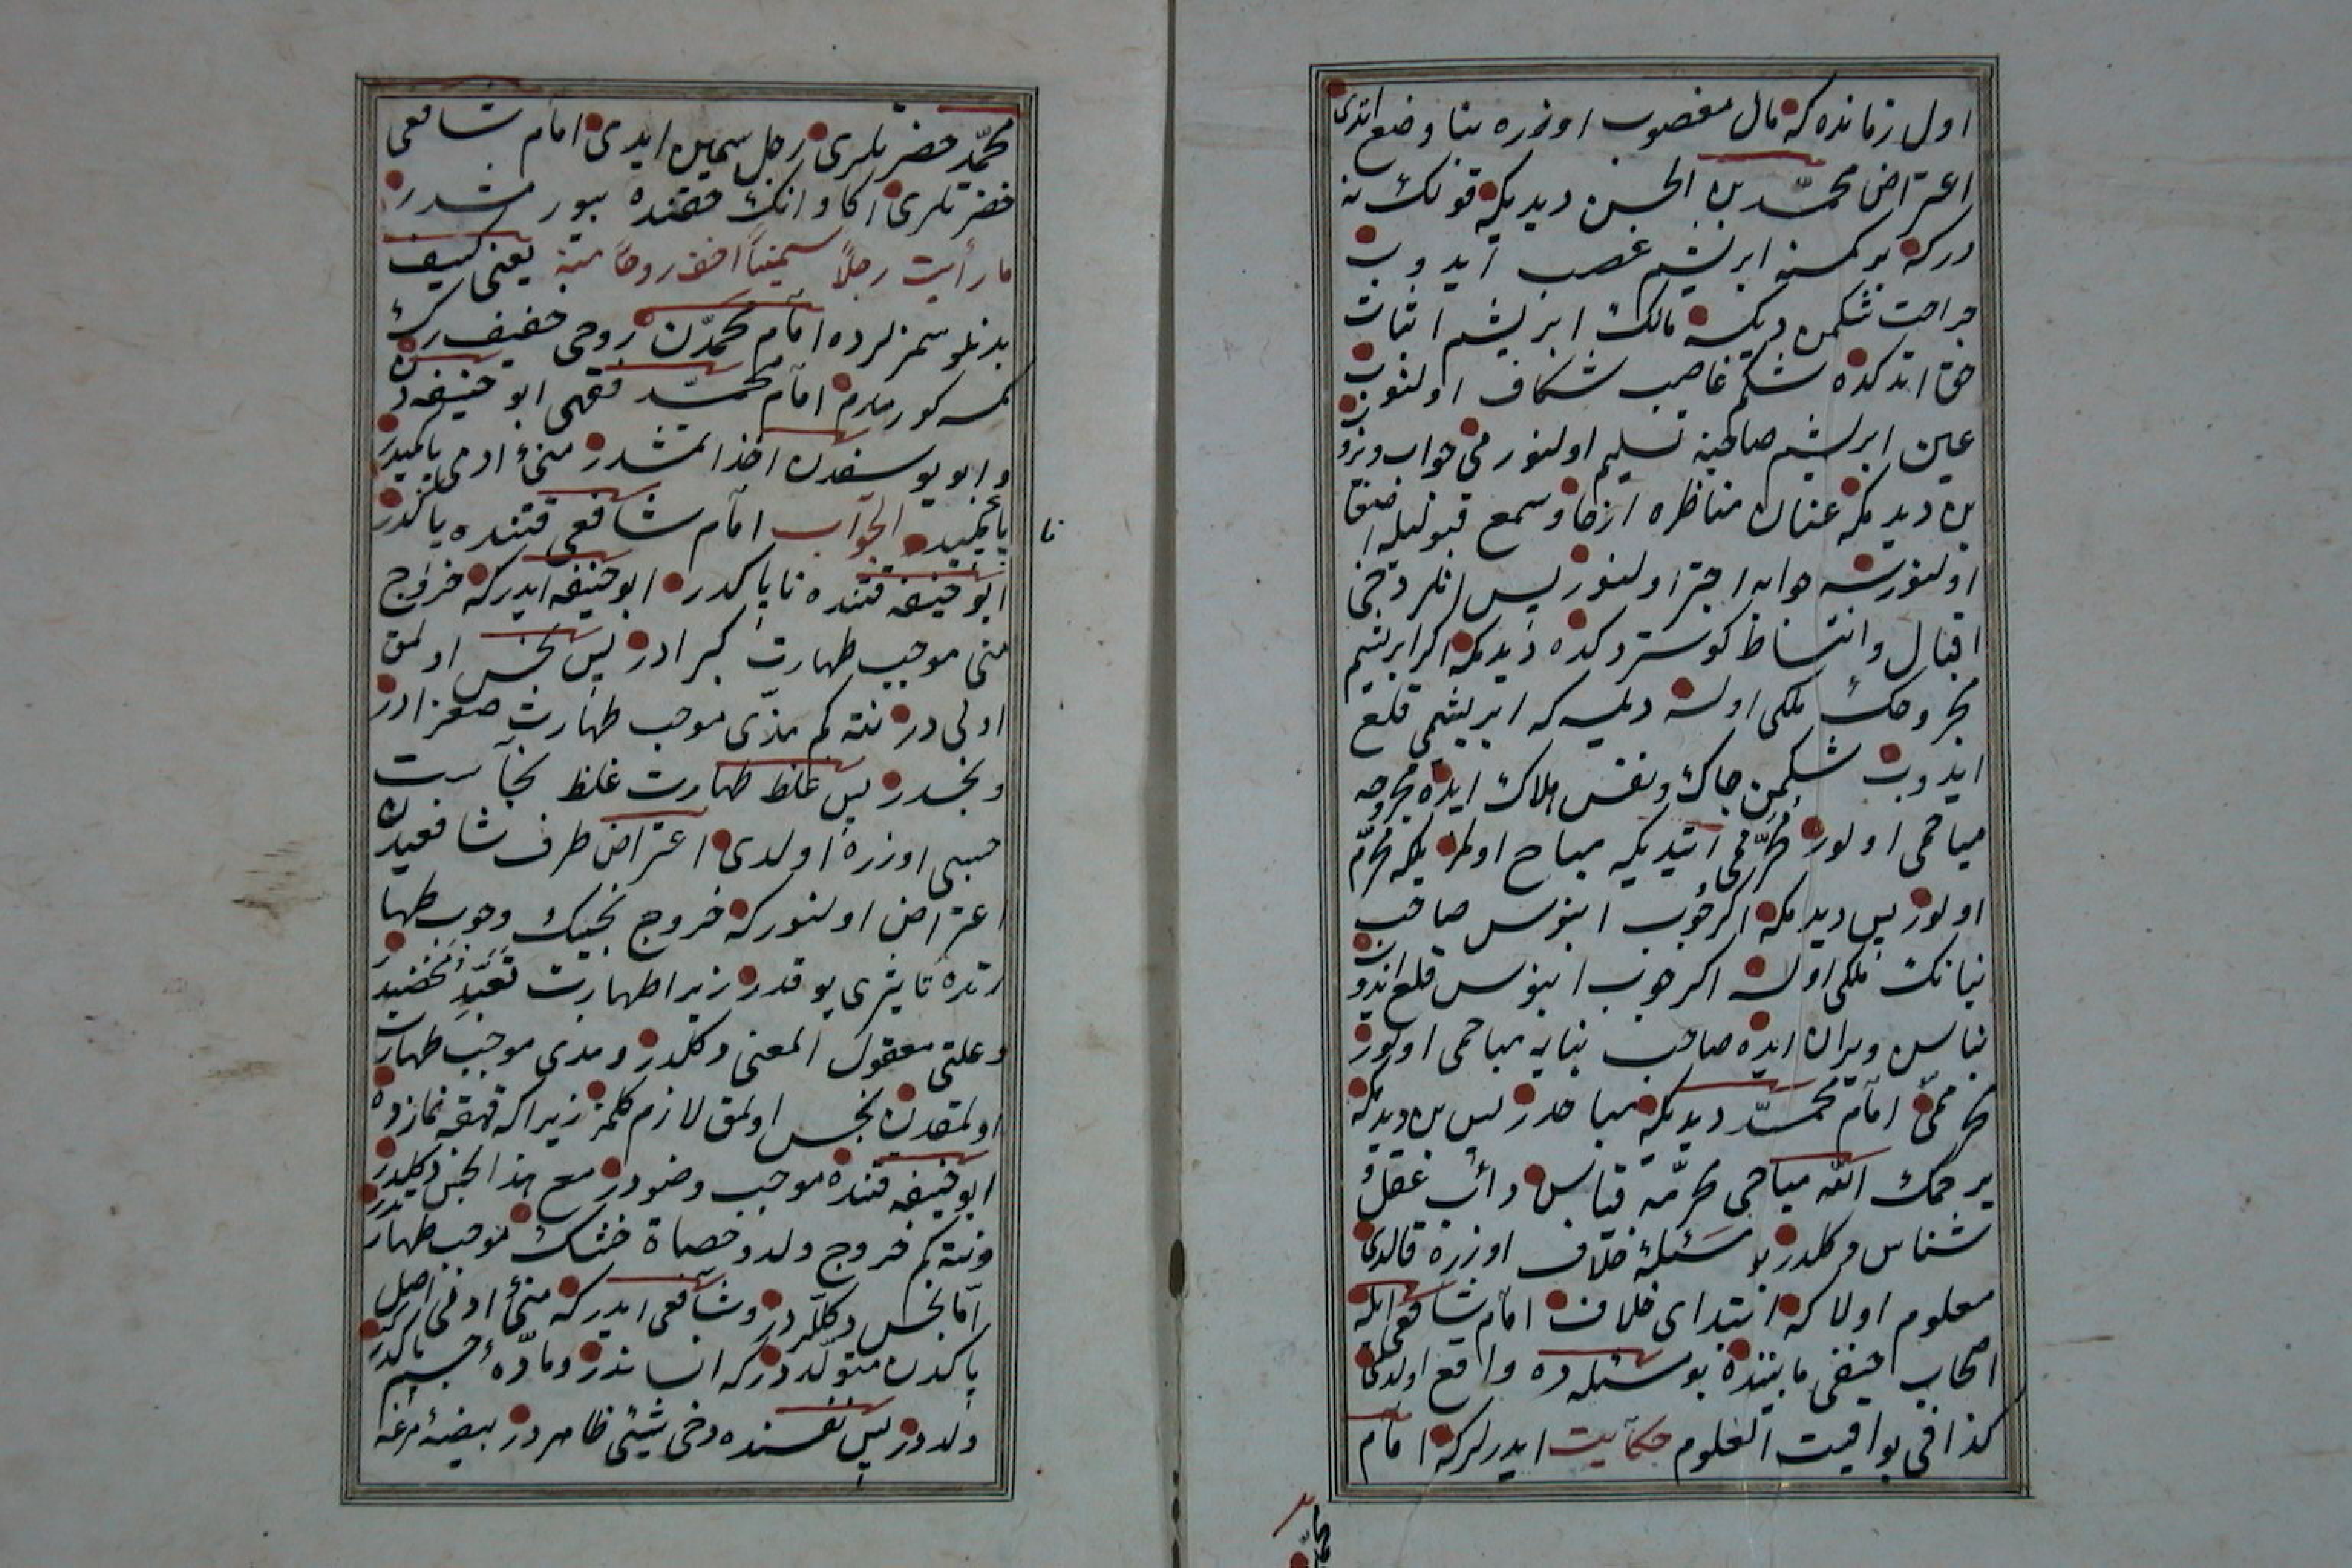 اول زمانده که مال مغصوب اوزره بنا وضع اتدی
اعتراض محمّد بن الحسن دیدیکه قولک نه
درکه بر کمسنه ابریشم غصب ایدوب
جراحت شکمن دیکسه مالک ابریشم اثبات
حق اتدکده شکم غاصب شکاف اولنوب
عین ابریشم صاحبنه تسلیم اولنورمی جواب ویرو
بن دیدیکه عنان مناظره ارخا وسمع قبولیله اصغا
اولنورسه جوابه اجترا اولنور پس انلر دخی
اقبال وانبساط کوستردکده دیدیکه اکر ابریشم
مجروحک ملکی اولسه دیلسه که ابریشمی قلع
ایدوب شکمن چاک ونفسن هلاک ایده مجروحه
مباحمی اولور محرّممی ایتدیکه مباح اولمز بلکه محرّم
اولور پس دیدیکه اکر چوب ابنوس صاحب
بنانک ملکی اولسه اکر چوب ابنوس قلع ایدوب
بناسن ویران ایده صاحب بنایه مباحمی اولور
محرّممی امام محمّد دیدیکه مباحدر پس بن دیدیکه
یرحمک الله مباحی محرّمه قیاس دأب عقل و
شناس دکلدر بو مسئله خلاف اوزره قالدی
معلوم اولاکه ابتدای خلاف امام شافعی ایله
اصحاب حنفی مابیننده بو مسئله ده واقع اولدی
کذا فی یواقیت العلوم حکایت ایدرلرکه امام
محمّد
محمّد حضرتلری رجل سمین ایدی امام شافعی
حضرتلری اکا وانک حقنده بیورمشدر
ما رأیت رجلاً سمیناً اخف روحاً منه یعنی کثیف
بدنلو سمزلرده امام محمّددن روحی خفیفرک
کمسه کورمدم امام محمّد فقهی ابو حنیفه دن
وابو یوسفدن اخذ اتمشدر منیٔ ادمی پاکمیدر
ناپاکمیدر الجواب امام شافعی قتنده پاکدر
نا
ابو حنیفه قتنده ناپاکدر ابو حنیفه ایدرکه خروج
منی موجب طهارت کبرادر پس نجس اولمق
اولی در نته کم مذی موجب طهارت صغرادر
ونجسدر پس غلظ طهارت غلظ نجاست
حسبی اوزره اولدی اعتراض طرف شافعیدن
اعتراض اولنورکه خروج نجسک وجوب طها
رتده تاثیری یوقدر زیرا طهارت تعبّد محضیدر
وعلتی معقول المعنی دکلدر ومذی موجب طهارت
اولمقدن نجس اولمق لازم کلمز زیراکه قهقهه نمازده
ابو حنیفه قتنده موجب وضودر مع هذا نجس دکلدر
ونته کم خروج ولد وحصاة خشک موجب طهارتدر
امّا نجس دکللردر وشافعی ایدرکه منیٔ ادمی اصل
پاکدن متولّددرکه انساندر ومادّهٔ جسم پاکدر
ولددر پس نفسنده دخی شیئی طاهردر بیضهٔ مرغه